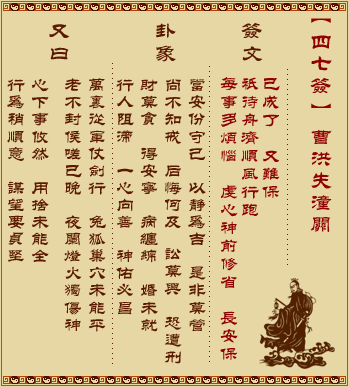 【四七簽】 曹洪失潼關
簽文
已成了 又難保
祇待舟濟順風行跑
每事多煩惱 虔心神前修省 長安保
卦象
當安份守己 以靜爲吉 是非莫管
尚不知戒 后悔何及 訟莫興 恐遭刑
財莫貪 得安寧 病纏綿 婚未就
行人阻滯 一心向善 神佑必昌
又曰
萬裏從軍仗劍行 兔狐巢穴未能平
老不封侯嗟已晚 夜闌燈火獨傷神
心下事攸然 用捨未能全
行爲稍順意 謀望要貞堅